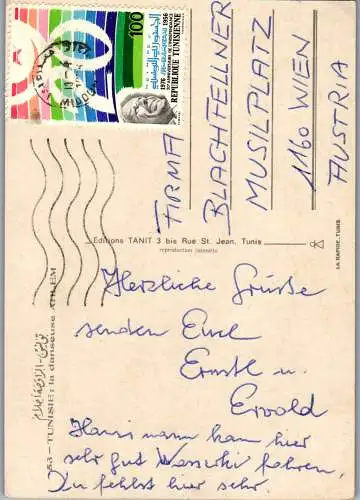 100
REPUBLIQUE TUNISIENNE
1956
1976
FIRMA
BLACHFELLNER
MUSILPLATZ
1160 WIEN
AUSTRIA
Editions TANIT 3 bis Rue St. Jean, Tunis
reproduction interdite
LA RAPIDE. TUNIS
53 - TUNISIE : la danseuse AHLEM
Herzliche Grüße
senden Euch
Ernstl u.
Ewald
Hansi mann kann hier
sehr gut Wasserski fahren.
Du fehlst hier sehr.